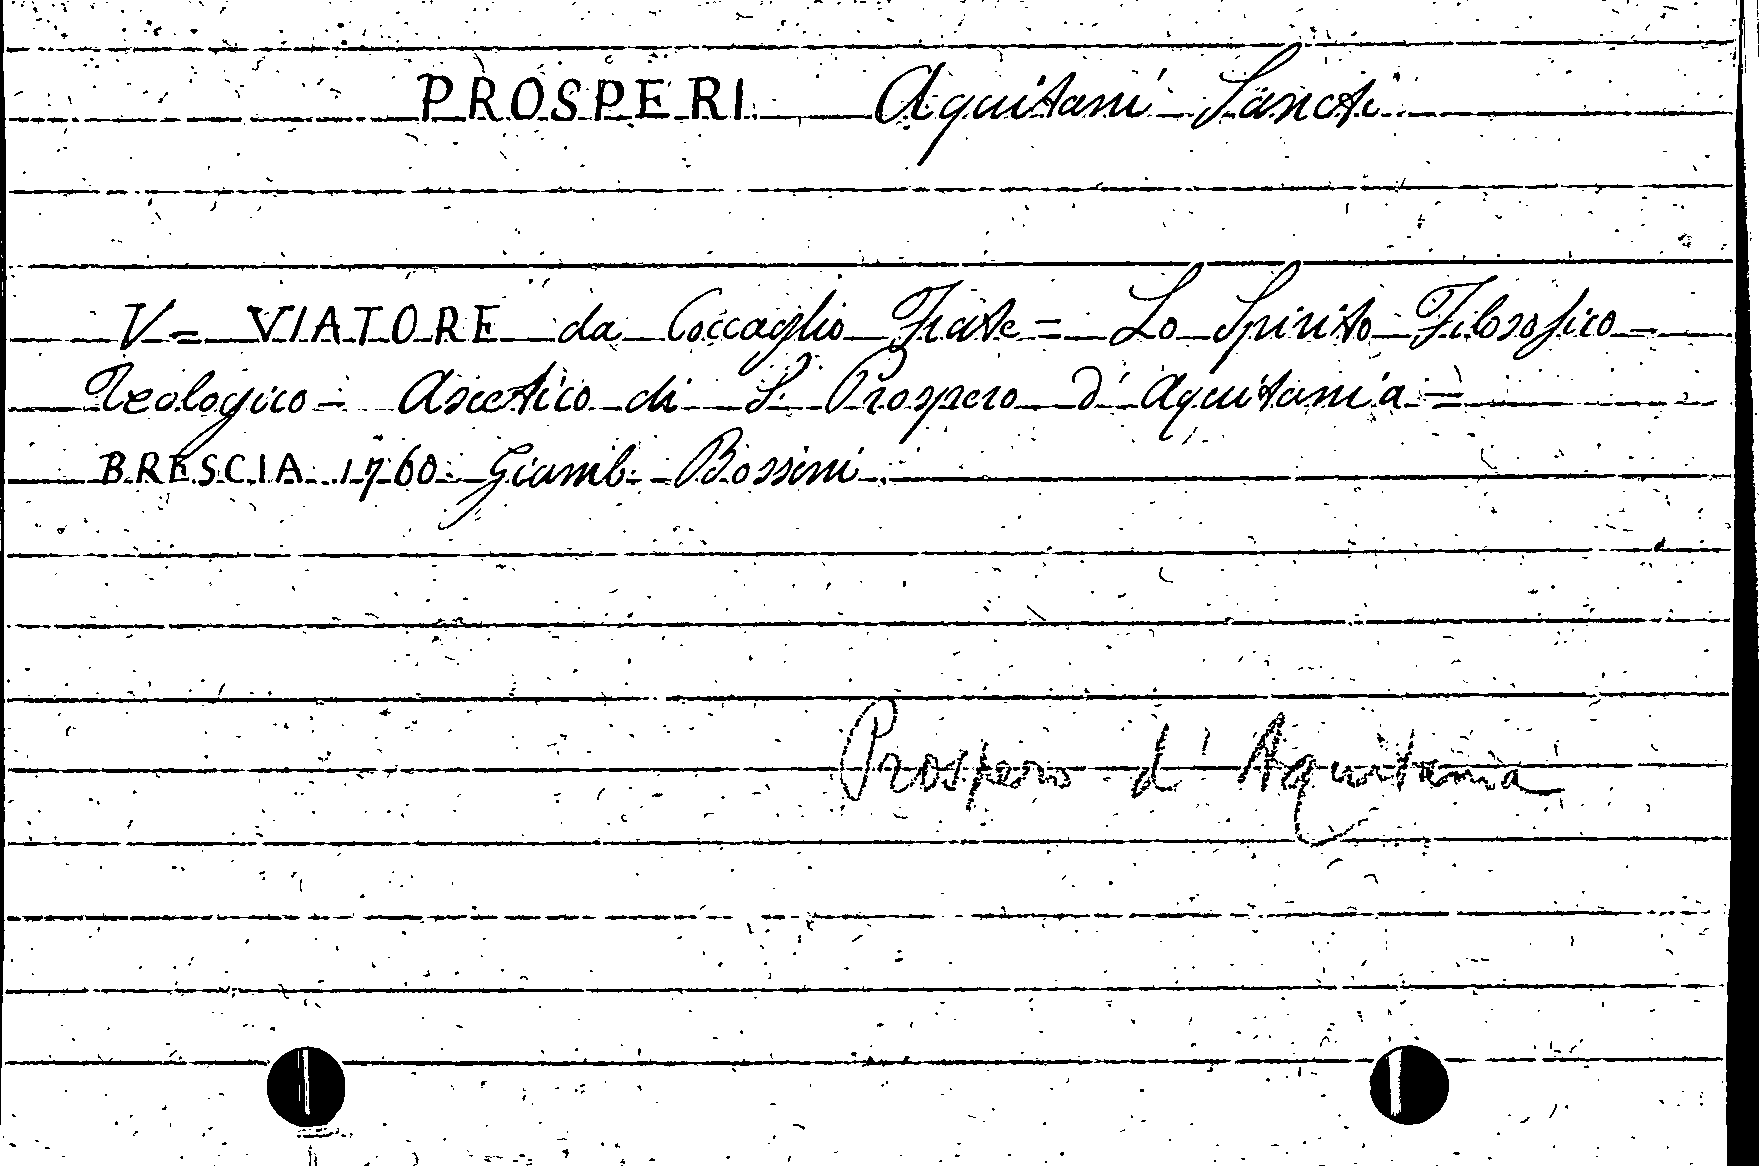 PROSPERI Aquitani Sancti
V= VIATORE da Coccaglio Frate = Lo Spirito Filosofico-
Teologico- Ascetico di S. Prospero d'Aquitania =
BRESCIA 1760. Giamb. Bossini
Prospero d'Aquitania